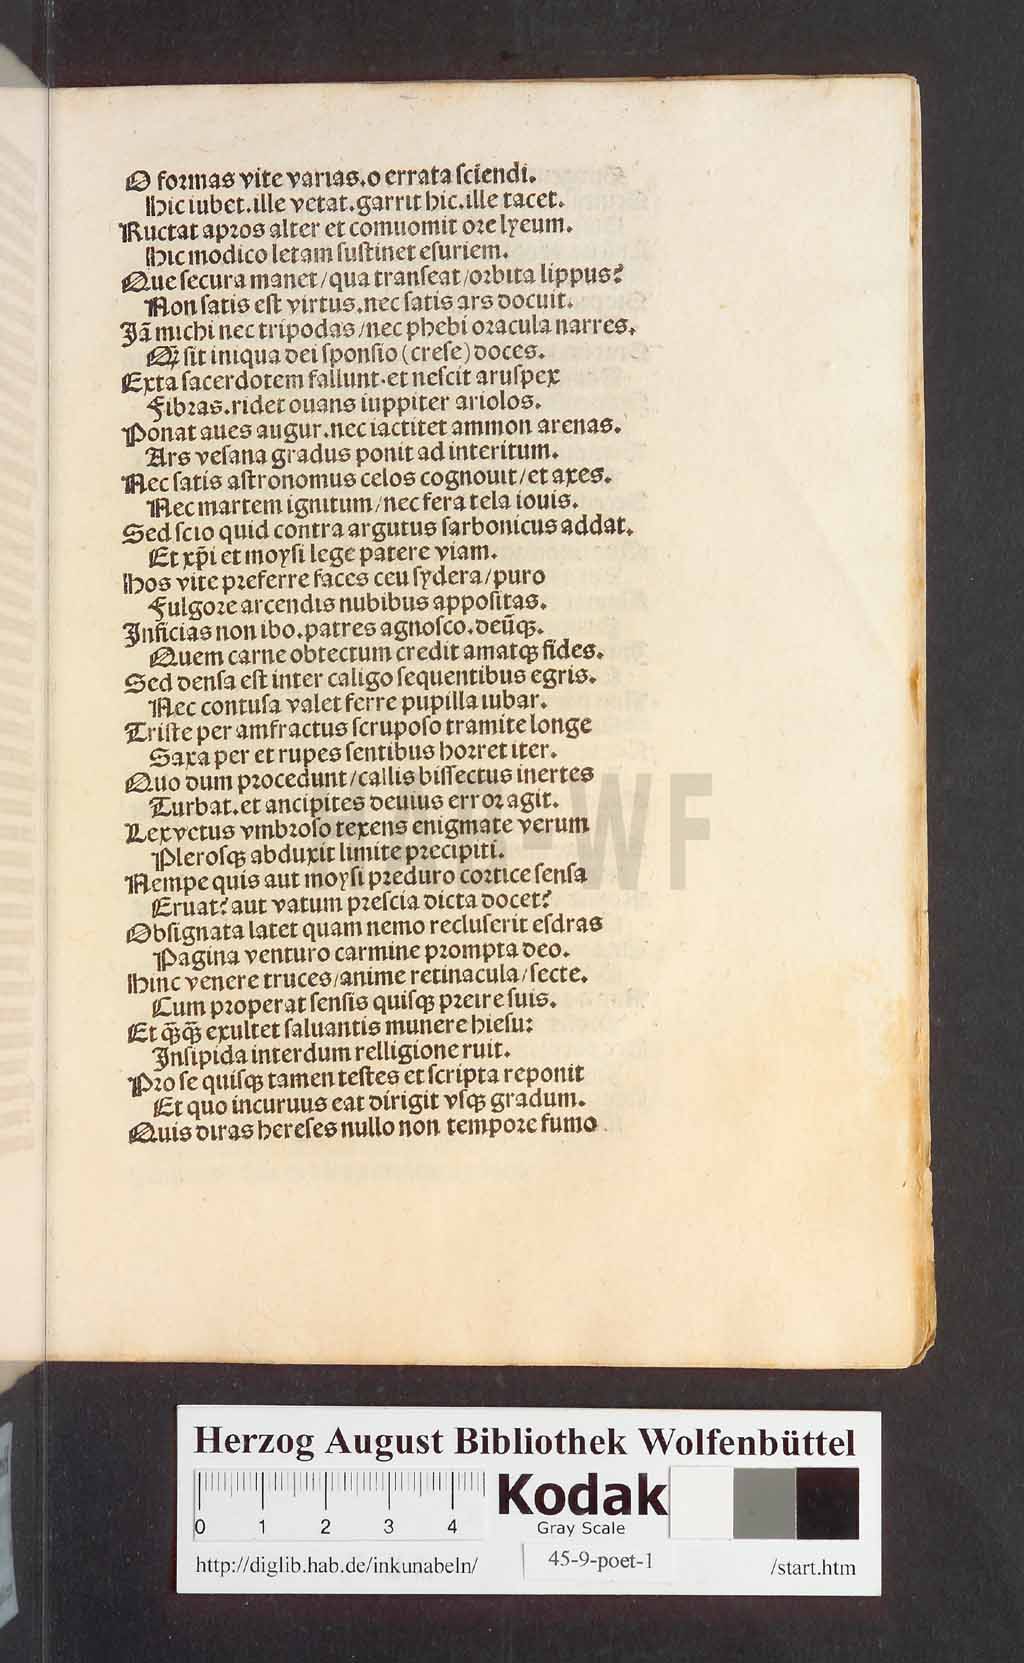 O formas vite varias.o errata sciendi.
Hic iubet.ille vetat.garrit hic.ille tacet.
Ructat apros alter et comuomit ore lyeum.
Hic modico letam sustinet esuriem.
Que secura manet/qua transeat/orbita lippus?
Non satis est virtus.nec satis ars docuit.
Jā michi nec tripodas/nec phebi oracula narres.
Qꝫ sit iniqua dei sponsio (crese) doces.
Exta sacerdotem fallunt.et nescit aruspex
Fibras.ridet ouans iuppiter ariolos.
Ponat aues augur.nec iactitet ammon arenas.
Ars vesana gradus ponit ad interitum.
Nec satis astronomus celos cognouit/et axes.
Nec martem ignitum/nec fera tela iouis.
Sed scio quid contra argutus sarbonicus addat.
Et xp̄i et moysi lege patere viam.
Hos vite preferre faces ceu sydera/puro
Fulgore arcendis nubibus appositas.
Inficias non ibo.patres agnosco.deūqꝫ.
Quem carne obtectum credit amatqꝫ fides.
Sed densa est inter caligo sequentibus egris.
Nec contusa valet ferre pupilla iubar.
Triste per amfractus scruposo tramite longe
Saxa per et rupes sentibus horret iter.
Quo dum procedunt/callis bissectus inertes
Turbat.et ancipites deuius error agit.
Lex vetus vmbroso texens enigmate verum
Plerosqꝫ abduxit limite precipiti.
Nempe quis aut moysi preduro cortice sensa
Eruat? aut vatum prescia dicta docet?
Obsignata latet quam nemo recluserit esdras
Pagina venturo carmine prompta deo.
Hinc venere truces/anime retinacula/secte.
Cum properat sensis quisqꝫ preire suis.
Et qꝫ̄qꝫ̄ exultet saluantis munere hiesu:
Insipida interdum relligione ruit.
Pro se quisqꝫ tamen testes et scripta reponit
Et quo incuruus eat dirigit vsqꝫ gradum.
Quis diras hereses nullo non tempore fumo
HAB-WF
Herzog August Bibliothek Wolfenbüttel
0 1 2 3 4
Kodak
Gray Scale
http://diglib.hab.de/inkunabeln/ 45-9-poet-1 /start.htm